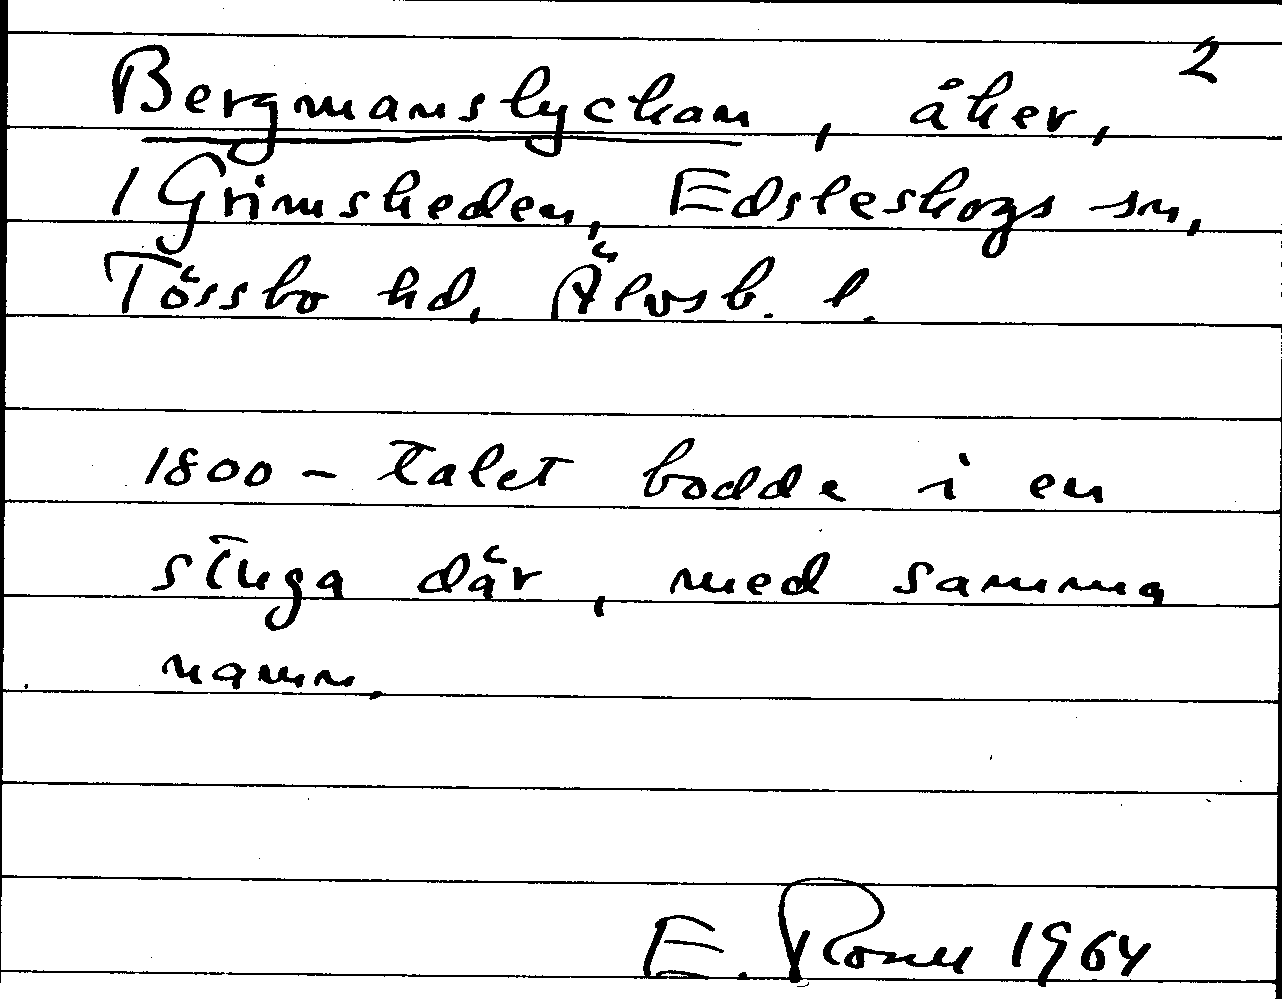 2
Bergmanslyckan, åker,
1 Grimsheden, Edsleskogs sn,
Tössbo hd, Älvsb. l.
1800-talet bodde i en
stuga där, med samma
namn.
E. 1964